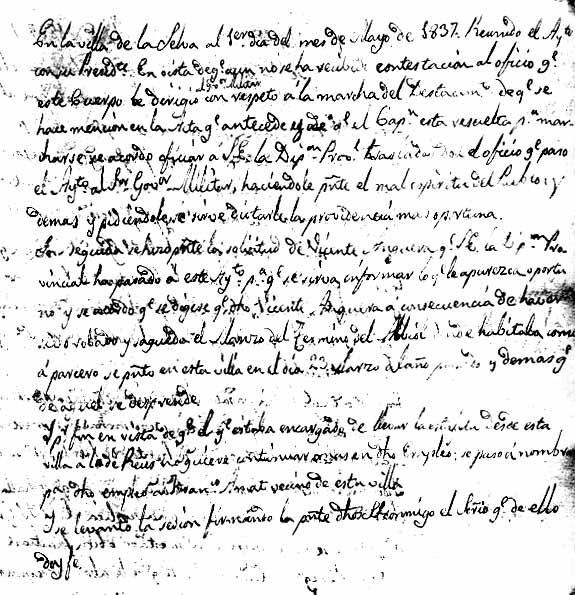 En la villa de la Selva al 1.er dia del mes de Mayo de 1837. Reunido el Ay.to
con su Presid.te En vista de q.e aun no se ha recibido contestacion al oficio q.e
este Cuerpo se dirigió con respeto á la marcha del Destacam.to de q.e se
hace mencion en la Acta q.e antecede y de q.e el Cap.n esta resuelto p.a mar
charse se acordó oficiar á S.E. la Dip.on Prov.l trascribiendo el oficio q.e paso
el Ay.to al Sor Gov.or Militar, haciendole pnte el mal espiritu del Pueblo y
demas y pidiendole se sirva dictarle la providencia mas oportuna.
En seguida se hizo pnte la solicitud de Vicente Anguera q.e S.E. la Dip.on Pro
vincial ha pasado á este Ay.to p.a q.e se sirva informar lo q.e le aparezca oportu
no y se acordó q.e se dijese q.e dho Vicente Anguera á consecuencia de haver
sido robado y saqueda el Manso del Termino del donde habitaba como
á parcero se pntó en esta villa en el dia 23 Marzo del año y demas q.e
de aquel se desprende.
Y p.r fin en vista de q.e el q.e estaba encargado de llevar la desde esta
villa á la de Reus no quiere continuar mas en dho Empleo; se pasó á nombrar
pa. dho empleo á Fran.co Amat vecino de esta villa
Y se levantó la sesion firmando la pnte dhos conmigo el Srio q.e de ello
doy fe.